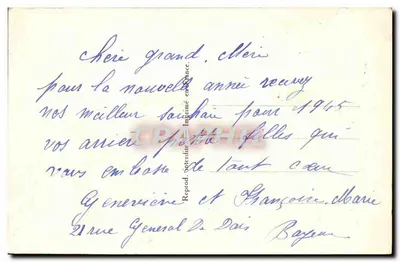 chère grand. Mère
pour la nouvelle année recevez
nos meilleur souhai pour 1945
vos arrière petite filles qui
vous embrasse de tout cœur
Geneviève et Françoise. Marie
21 rue General De Dais
CPAPHIL
Reprod. interdite Imprimé en France.